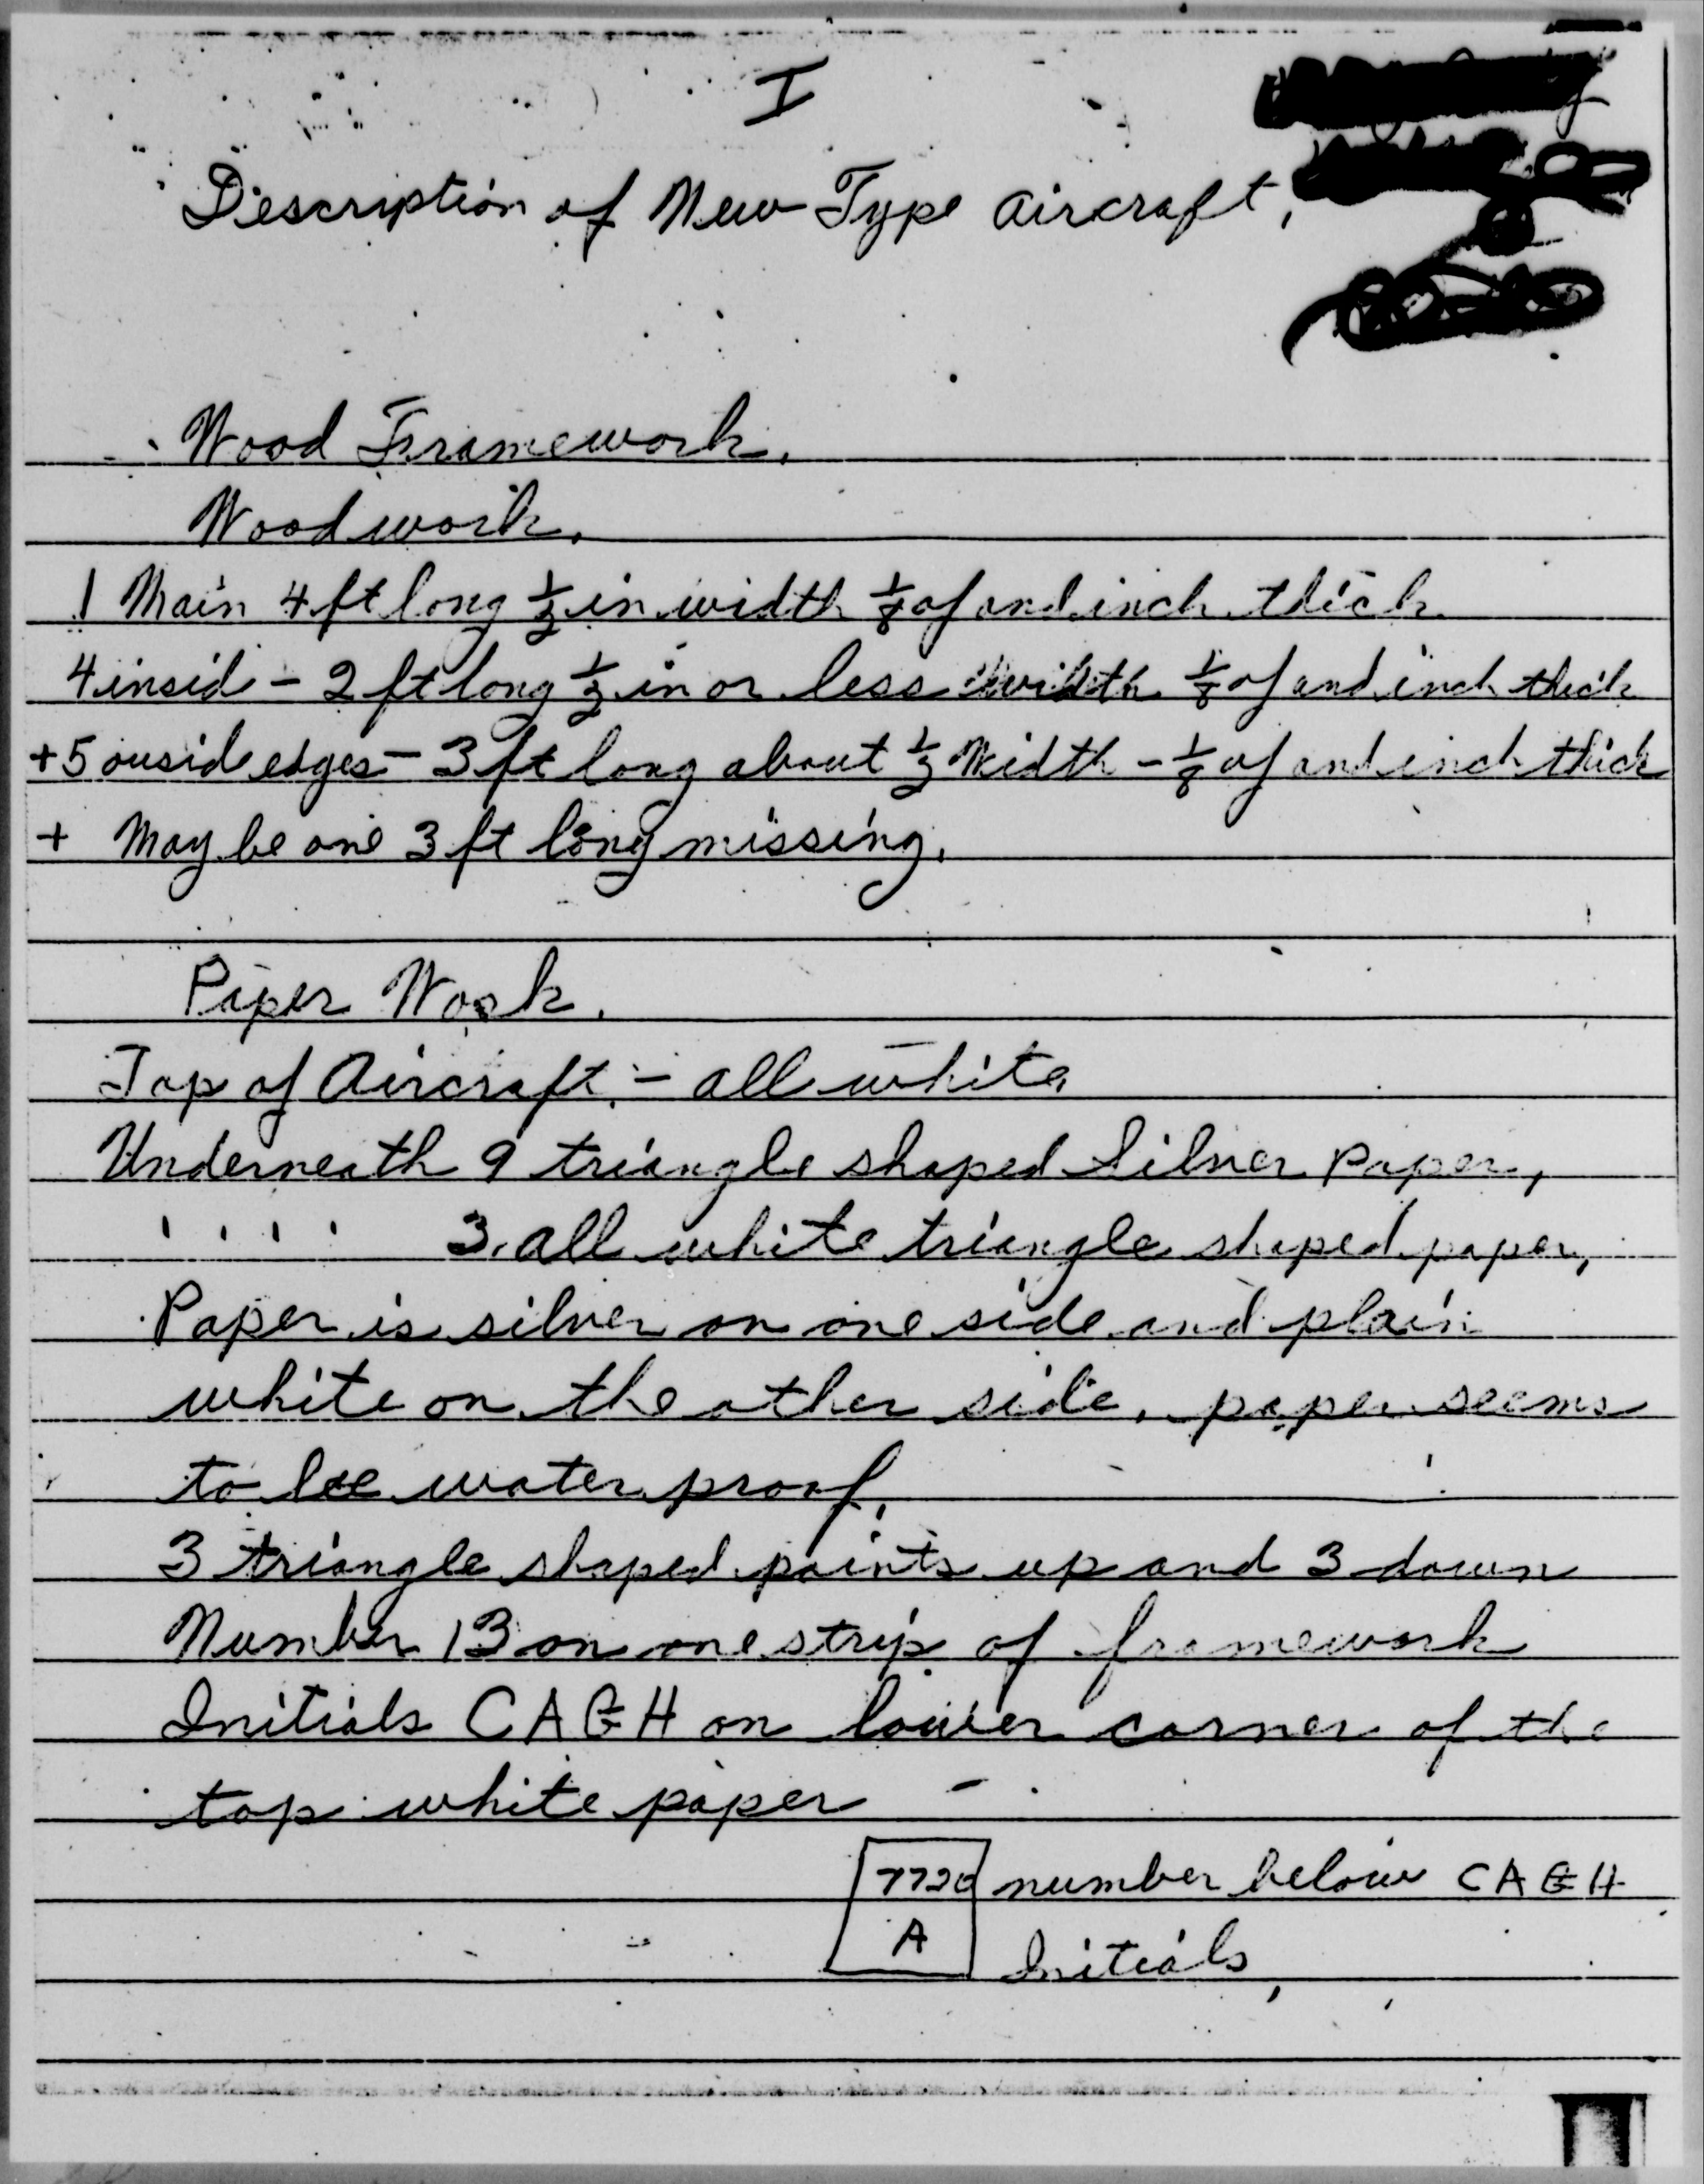 I
Description of New Type Aircraft,
Wood Framework.
Woodwork.
1 Main 4 ft long 1/2 in width 1/8 of and inch thick
4 insid - 2 ft long 1/2 in or less width 1/8 of and inch thick
+ 5 ousid edges - 3 ft long about 1/2 width - 1/8 of and inch thick
+ May be one 3 ft long missing.
Paper Work.
Top of Aircraft. - all white
Underneath 9 triangle shaped Silver paper,
' ' ' ' 3 all white triangle shaped paper,
Paper is silver on one side and plain
white on the other side, paper seems
to be water proof,
3 triangle shaped points up and 3 down
Number 13 on one strip of framework
Initials CAGH on lower corner of the
top white paper -
7720 number below CAGH
A Initials,